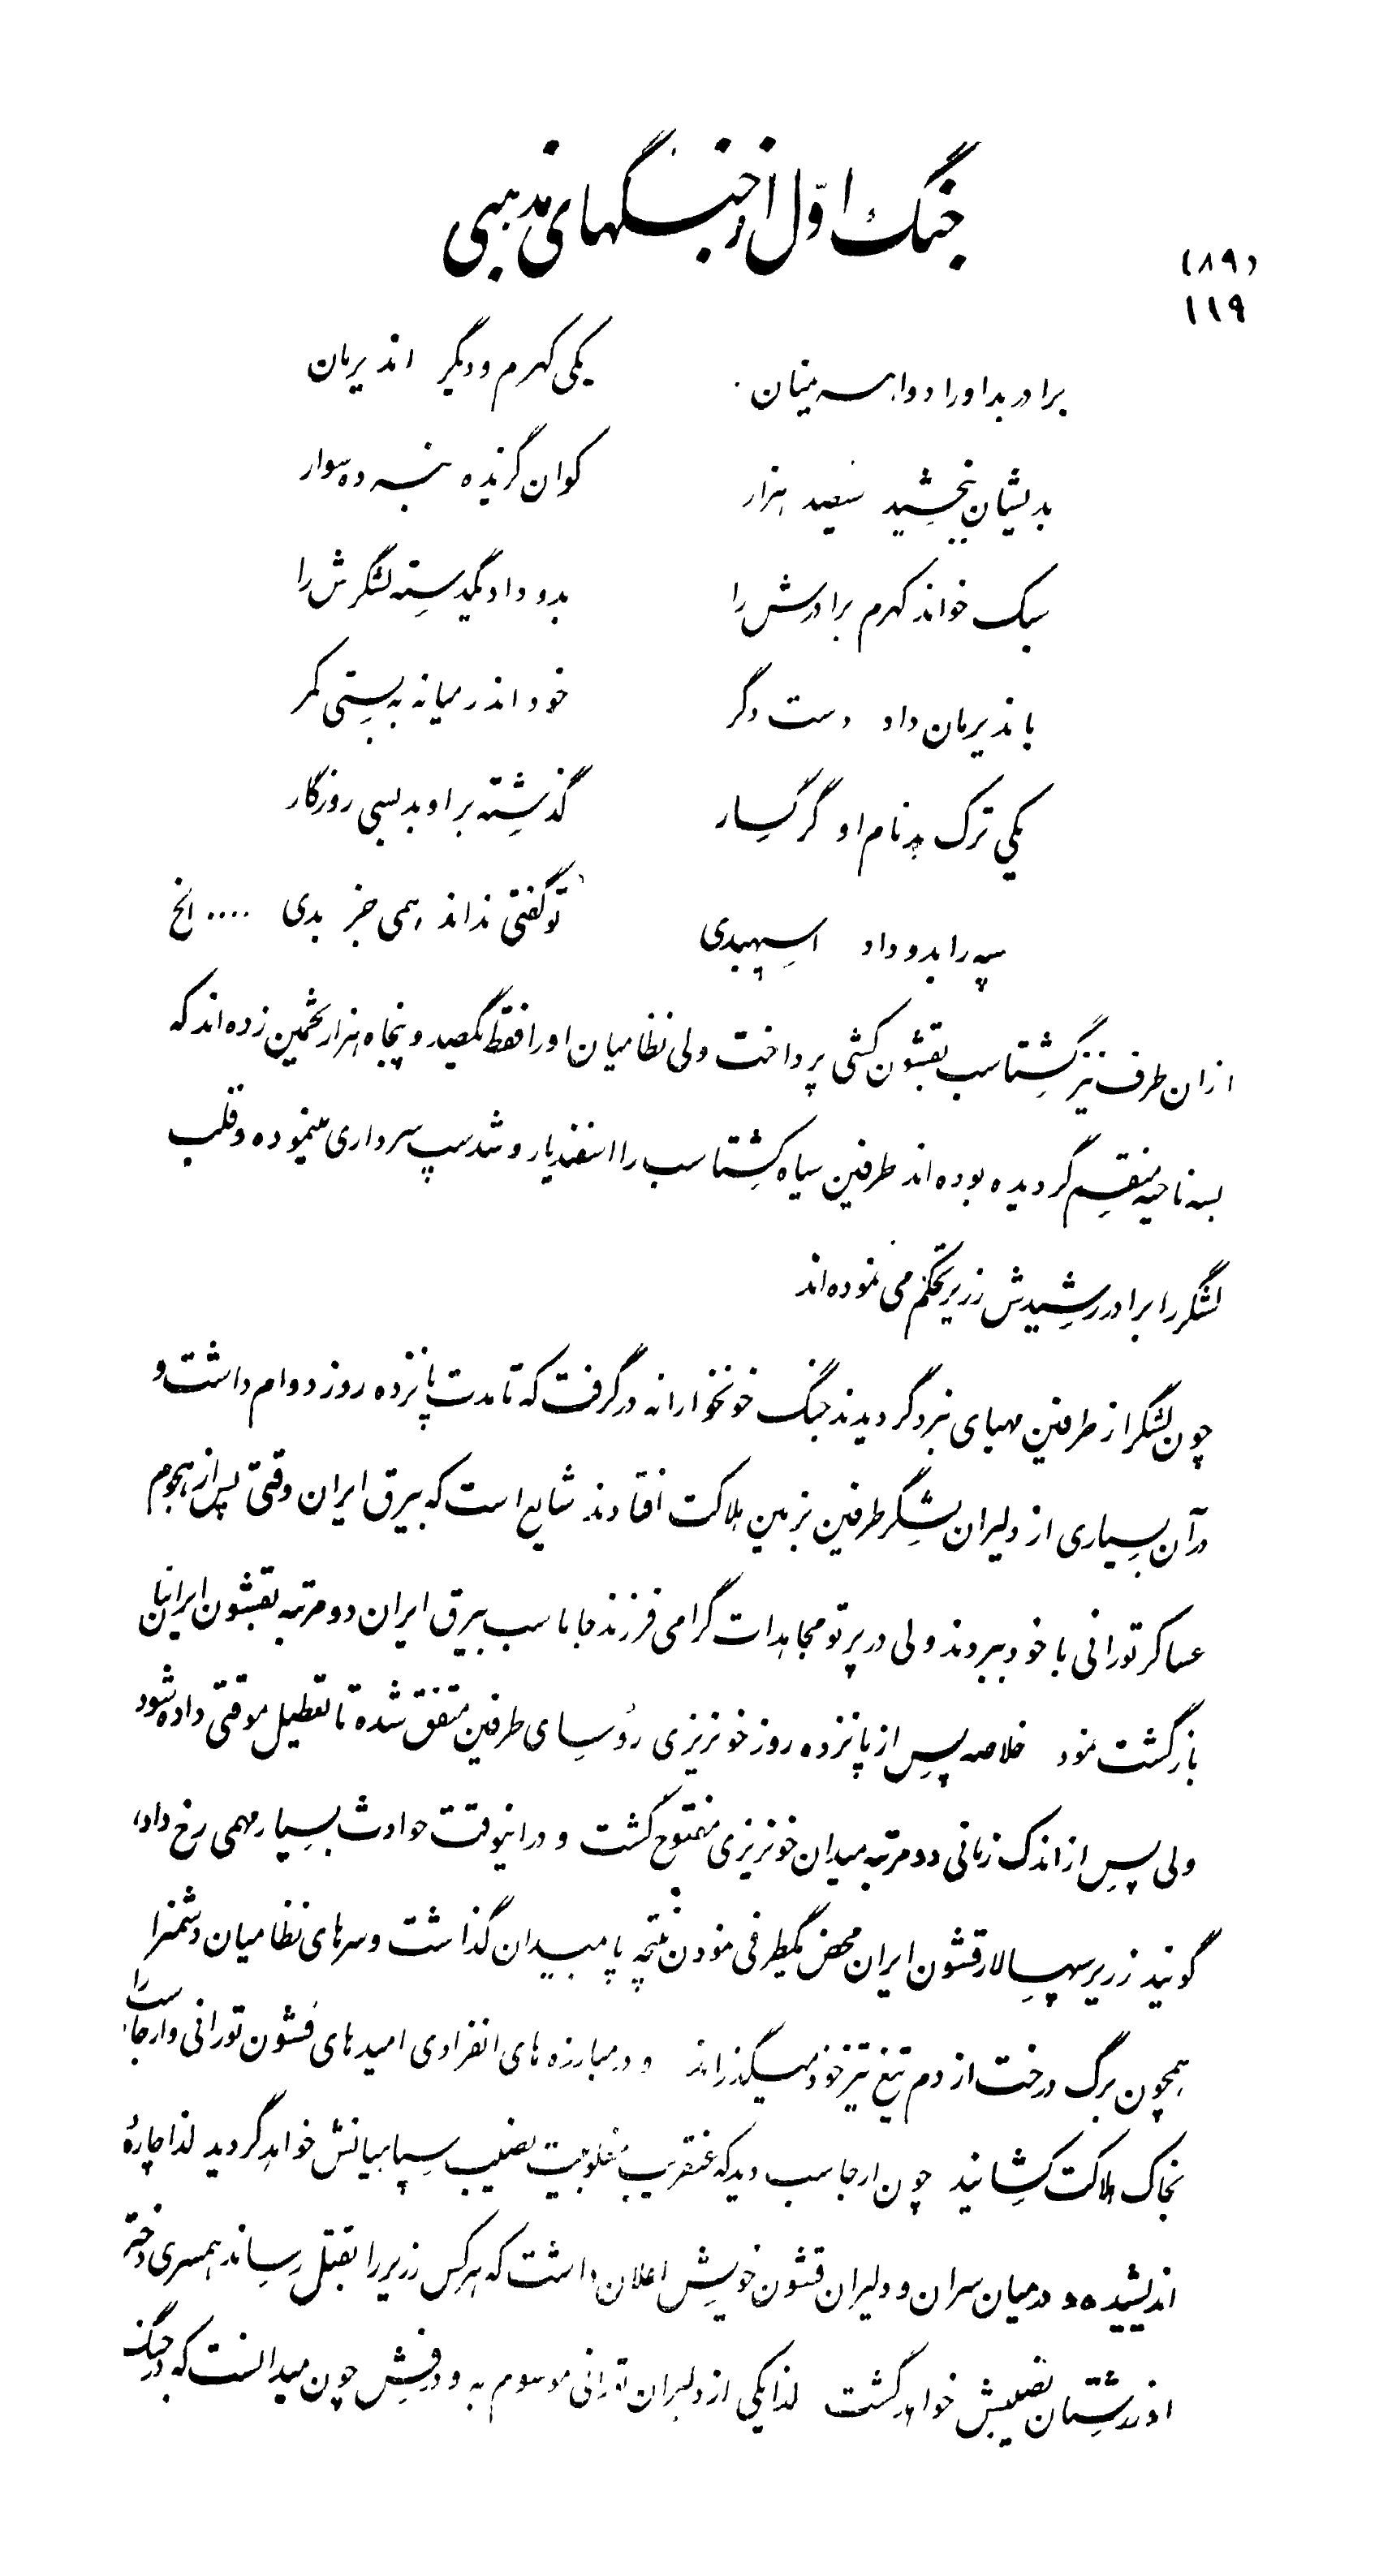 جنگ اوّل از جنگهای مذهبی
(۸۹)
۱۱۹
برادر بد او را دو اهرمنان یکی کهرم و دیگر اندیرمان
بدیشان ببخشید سیصد هزار گوان گزیده نبرده سوار
سبک خواند کهرم برادرش را بدو داد یکدسته لشکرش را
باندیرمان داد دست دگر خود اندر میانه به بستی کمر
یکی ترک بد نام او گرگسار گذشته بر او بد بسی روزگار
سپه را بدو داد اسپهبدی تو گفتی نداند همی جز بدی .... الخ
از ان طرف نیز گشتاسب بقشون کشی پرداخت ولی نظامیان او را فقط یکصد و پنجاه هزار تخمین زده اند که
بسه ناحیه منقسم گردیده بوده اند طرفین سپاه گشتاسب را اسفندیار و شدسپ سرداری مینموده و قلب
لشگر را برادر رشیدش زریر تحکم می نموده اند
چون لشگر از طرفین مهیای نبرد گردیدند جنگ خونخوارانه در گرفت که تا مدت پانزده روز دوام داشت و
در آن بسیاری از دلیران لشگر طرفین بزمین هلاکت افتادند شایع است که بیرق ایران وقتی پس از هجوم
عساکر تورانی با خود ببردند ولی در پرتو مجاهدات گرامی فرزند جاماسب بیرق ایران دو مرتبه بقشون ایرانیان
بازگشت نمود خلاصه پس از پانزده روز خونریزی رؤسای طرفین متفق شده تا تعطیل موقتی داده شود
ولی پس از اندک زمانی دو مرتبه میدان خونریزی مفتوح گشت و در اینوقت حوادث بسیار مهمی رخ داد،
گویند زریر سپهسالار قشون ایران محض یکطرفی نمودن نتیجه پا بمیدان گذاشت و سرهای نظامیان دشمنرا
همچون برگ درخت از دم تیغ تیز خود میگذراند و در مبارزه های انفرادی امیدهای قشون تورانی و ارجاسب را
بخاک هلاکت کشانید چون ارجاسب دید که عنقریب مغلوبیت نصیب سپاهیانش خواهد گردید لذا چارهٔ
اندیشیده و در میان سران و دلیران قشون خویش اعلان داشت که هر کس زریر را بقتل رساند همسری دختر
نصیبش خواهد گشت لذا یکی از دلیران تورانی موسوم به و درفش چون میدانست که در جنگ